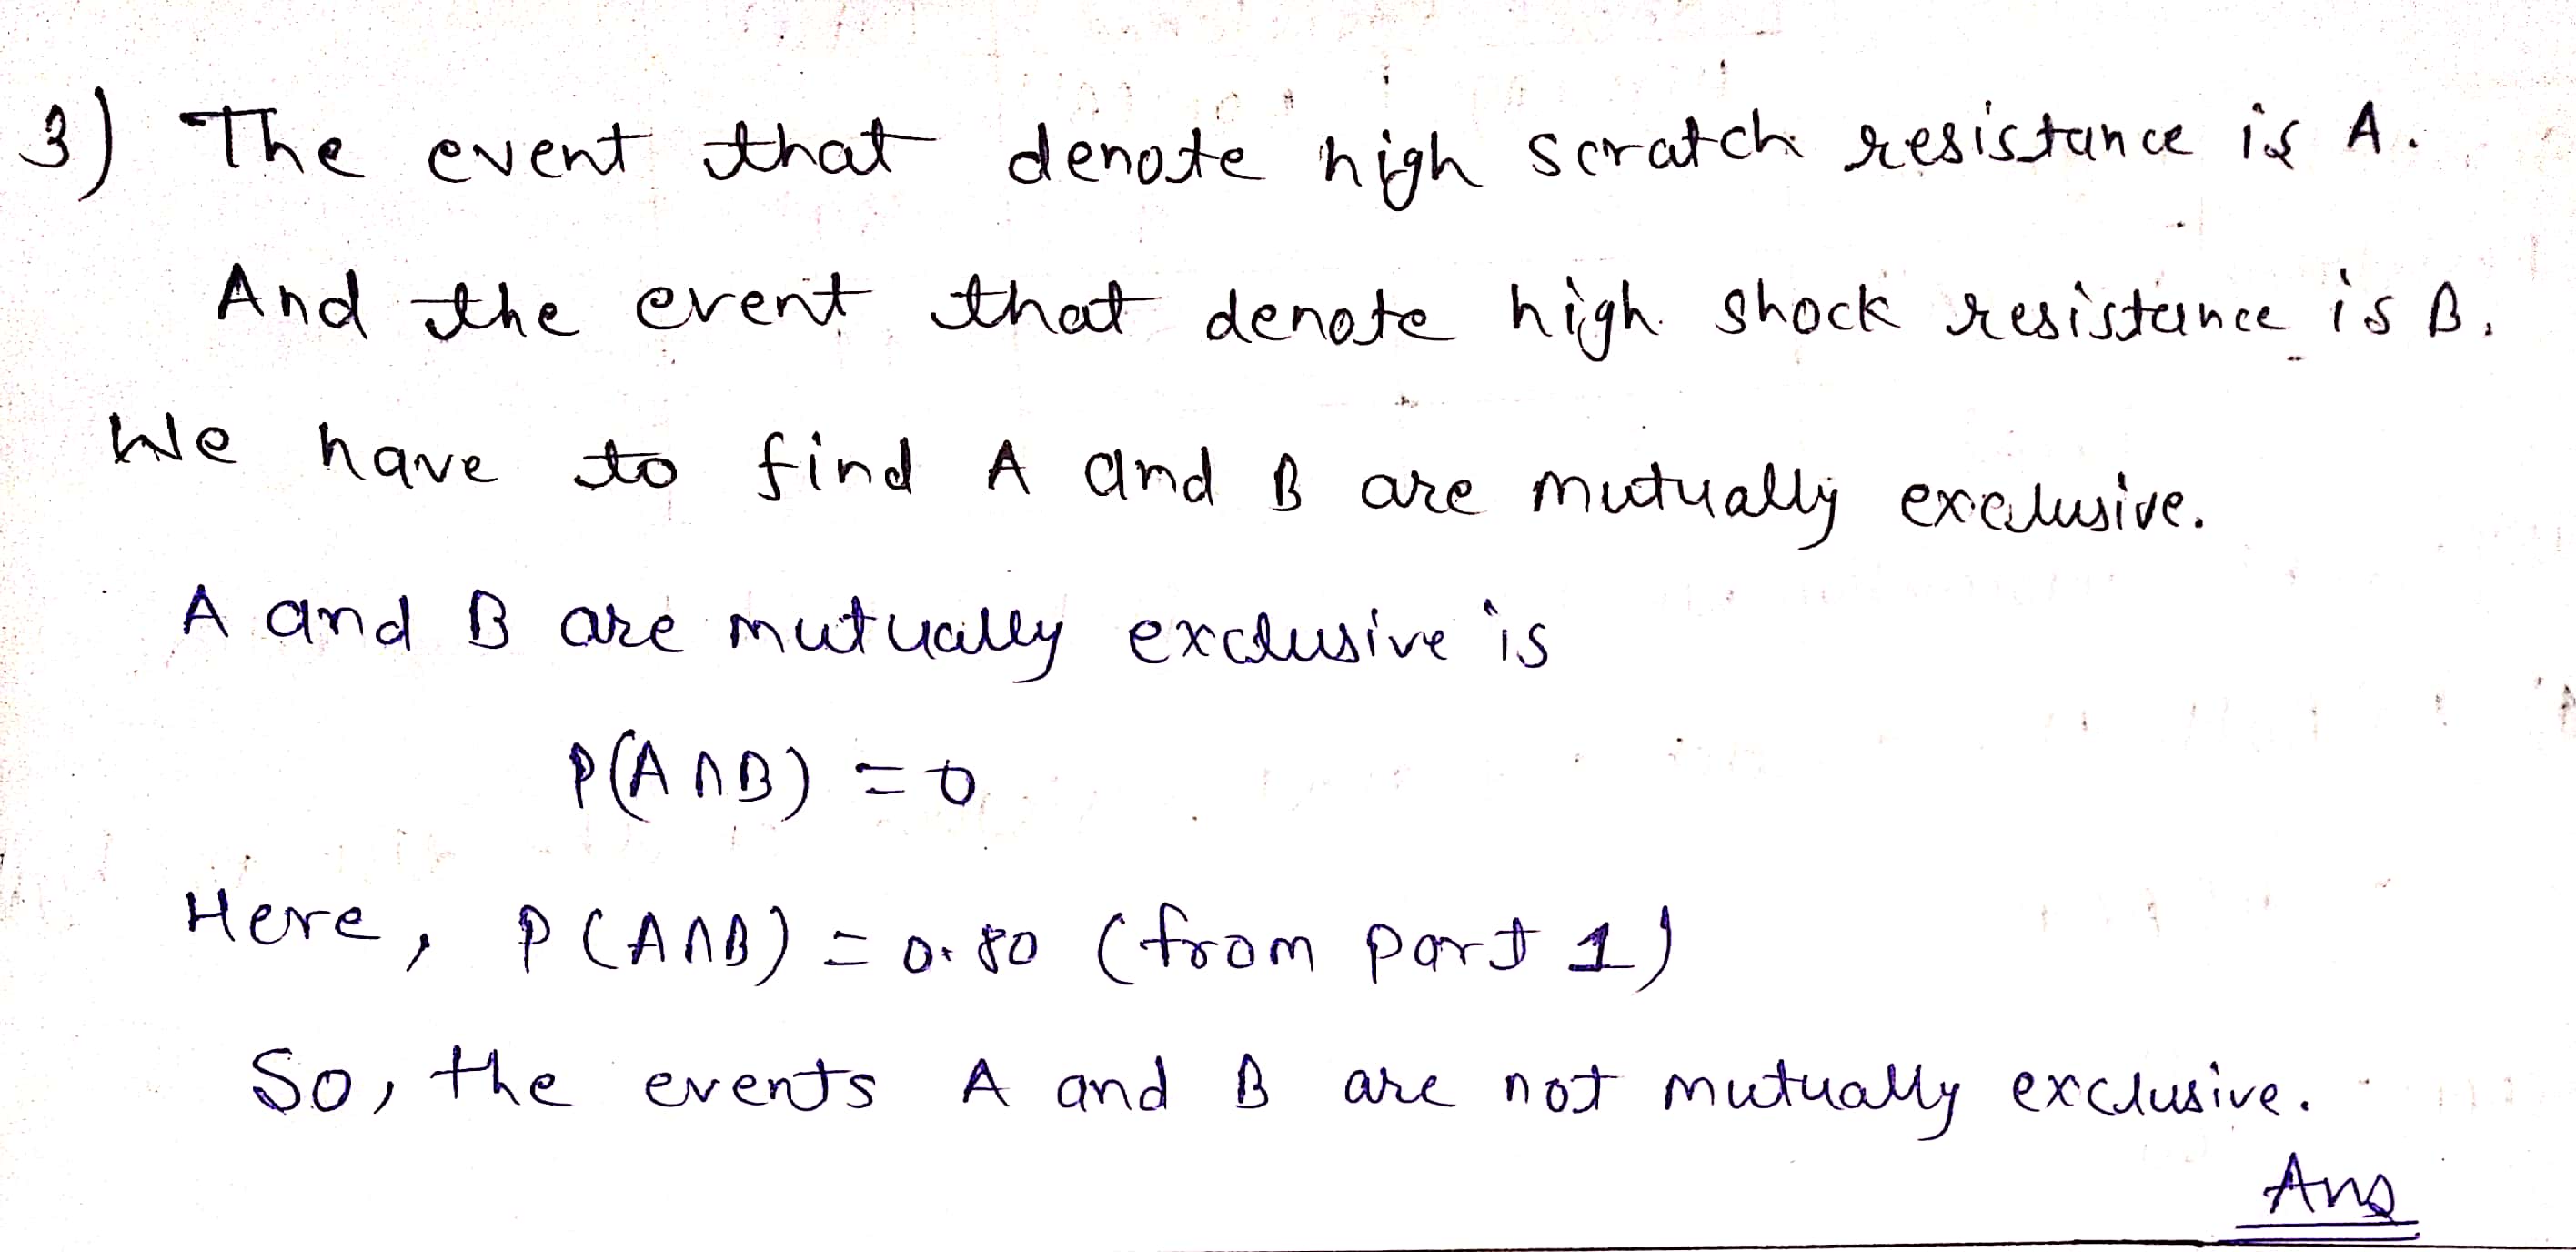 3) The event that denote high scratch resistance is A.
And the event that denote high shock resistance is B.
We have to find A and B are mutually exclusive.
A and B are mutually exclusive is
P(A∩B) = 0
Here, P(A∩B) = 0.80 (from part 1)
So, the events A and B are not mutually exclusive.
Ans